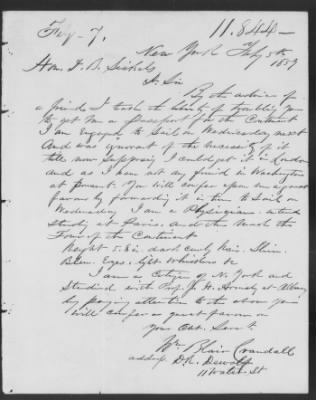 Feby 7. 11.844—
New York Feby 5th 1859
Hon. D. B. Sickels
D. Sir
By the advice of
a friend I took the liberty of troubling you
to get me a Passport for the Continent
I am Engaged to Sail on Wednesday next
And was ignorant of the necessity of it
till now Supposing I could get it in London
and as I have not any friend in Washington
at present. You will confer upon me a great
favour by forwarding it in time to Sail on
Wednesday I am a Physician intend
Study at Paris and then make the
Tour of the Continent
Height 5.8 in dark curly hair. Slim.
Blue Eyes. light Whiskers &c
I am a Citizen of N. York and
Studied with Prof. J. H. Armsby at Albany
by paying attention to the above you
will confer a great favour on
Your Obt. Servt
Wm Blair Crandall
address D. R. Dewolf
11 Water St